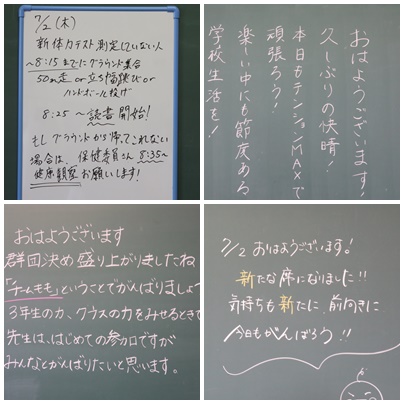 7/2(木)
新体力テスト測定していない人
～8:15までにグラウンド集合
50m走 or 立ち幅跳び or
ハンドボール投げ
8:25 ～読書開始！
もしグラウンドから帰ってこれない
場合は、保健委員さん 8:35～
健康観察お願いします！
おはようございます！
久しぶりの快晴！
本日もテンションMAXで
頑張ろう！
楽しい中にも節度ある
学校生活を！
おはようございます
群団決め盛り上がりましたね
「チームもも」ということでがんばりましょう
3年生の力、クラスの力をみせるときで
先生は、はじめての参加ですが
みんなとがんばりたいと思います。
7/2 おはようございます！
新たな席になりました!!
気持ちも新たに前向きに
今日もがんばろう!!